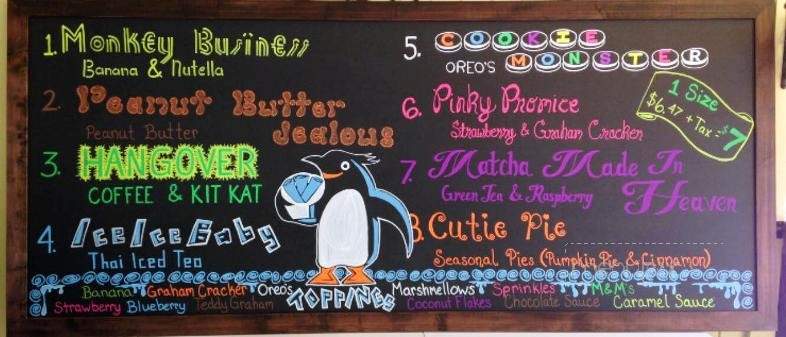 1. Monkey Business
Banana & Nutella
2. Peanut Butter
Jealous
Peanut Butter
3. HANGOVER
COFFEE & KIT KAT
4. Ice Ice Baby
Thai Iced Tea
5. COOKIE
MONSTER
OREO'S
6. Pinky Promice
Strawberry & Graham Cracker
7. Matcha Made In
Heaven
Green Tea & Raspberry
8. Cutie Pie
Seasonal Pies (Pumpkin Pie & Cinnamon)
1 Size
$6.47 + Tax = $7
TOPPINGS
Banana Graham Cracker Oreo's Marshmellows Sprinkles M&M's
Strawberry Blueberry Teddy Graham Coconut Flakes Chocolate Sauce Caramel Sauce